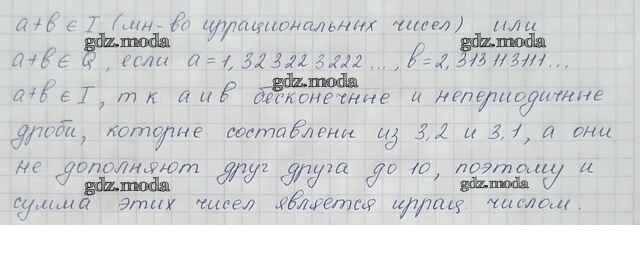 a+b ∈ I (мн-во иррациональных чисел) или
gdz.moda gdz.moda
a+b ∈ Q, если a = 1,323223222..., b = 2,313113111...
gdz.moda
a+b ∈ I, т к a и b бесконечные и непериодичные
дроби, которые составлены из 3,2 и 3,1, а они
gdz.moda gdz.moda
не дополняют друг друга до 10, поэтому и
gdz.moda gdz.moda
сумма этих чисел является иррац числом.